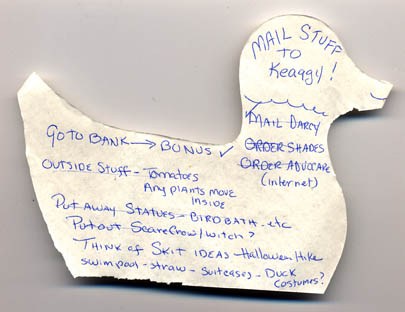 MAIL STUFF
TO
Keaggy!
MAIL DARCY
GO TO BANK → BONUS ✓
ORDER SHADES
ORDER ADVOCARE
(internet)
OUTSIDE STUFF - Tomatoes
Any plants move
inside
Put AWAY STATUES - BIRDBATH - etc
Put out Scarecrow/witch?
THINK of SKIT IDEAS - Halloween Hike
swim pool - straw - suitcases - DUCK
costumes?